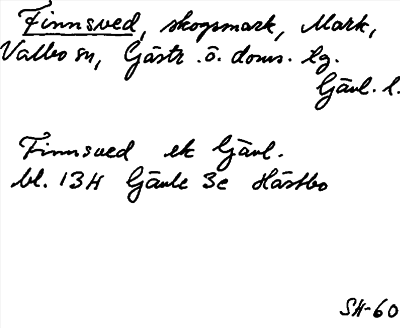 Finnsved, skogsmark, Mark,
Valbo sn, Gästr. ö. doms. lg.
Gävl. l.
Finnsved ek Gävl.
bl. 13H Gävle 3c Hästbo
SH-60